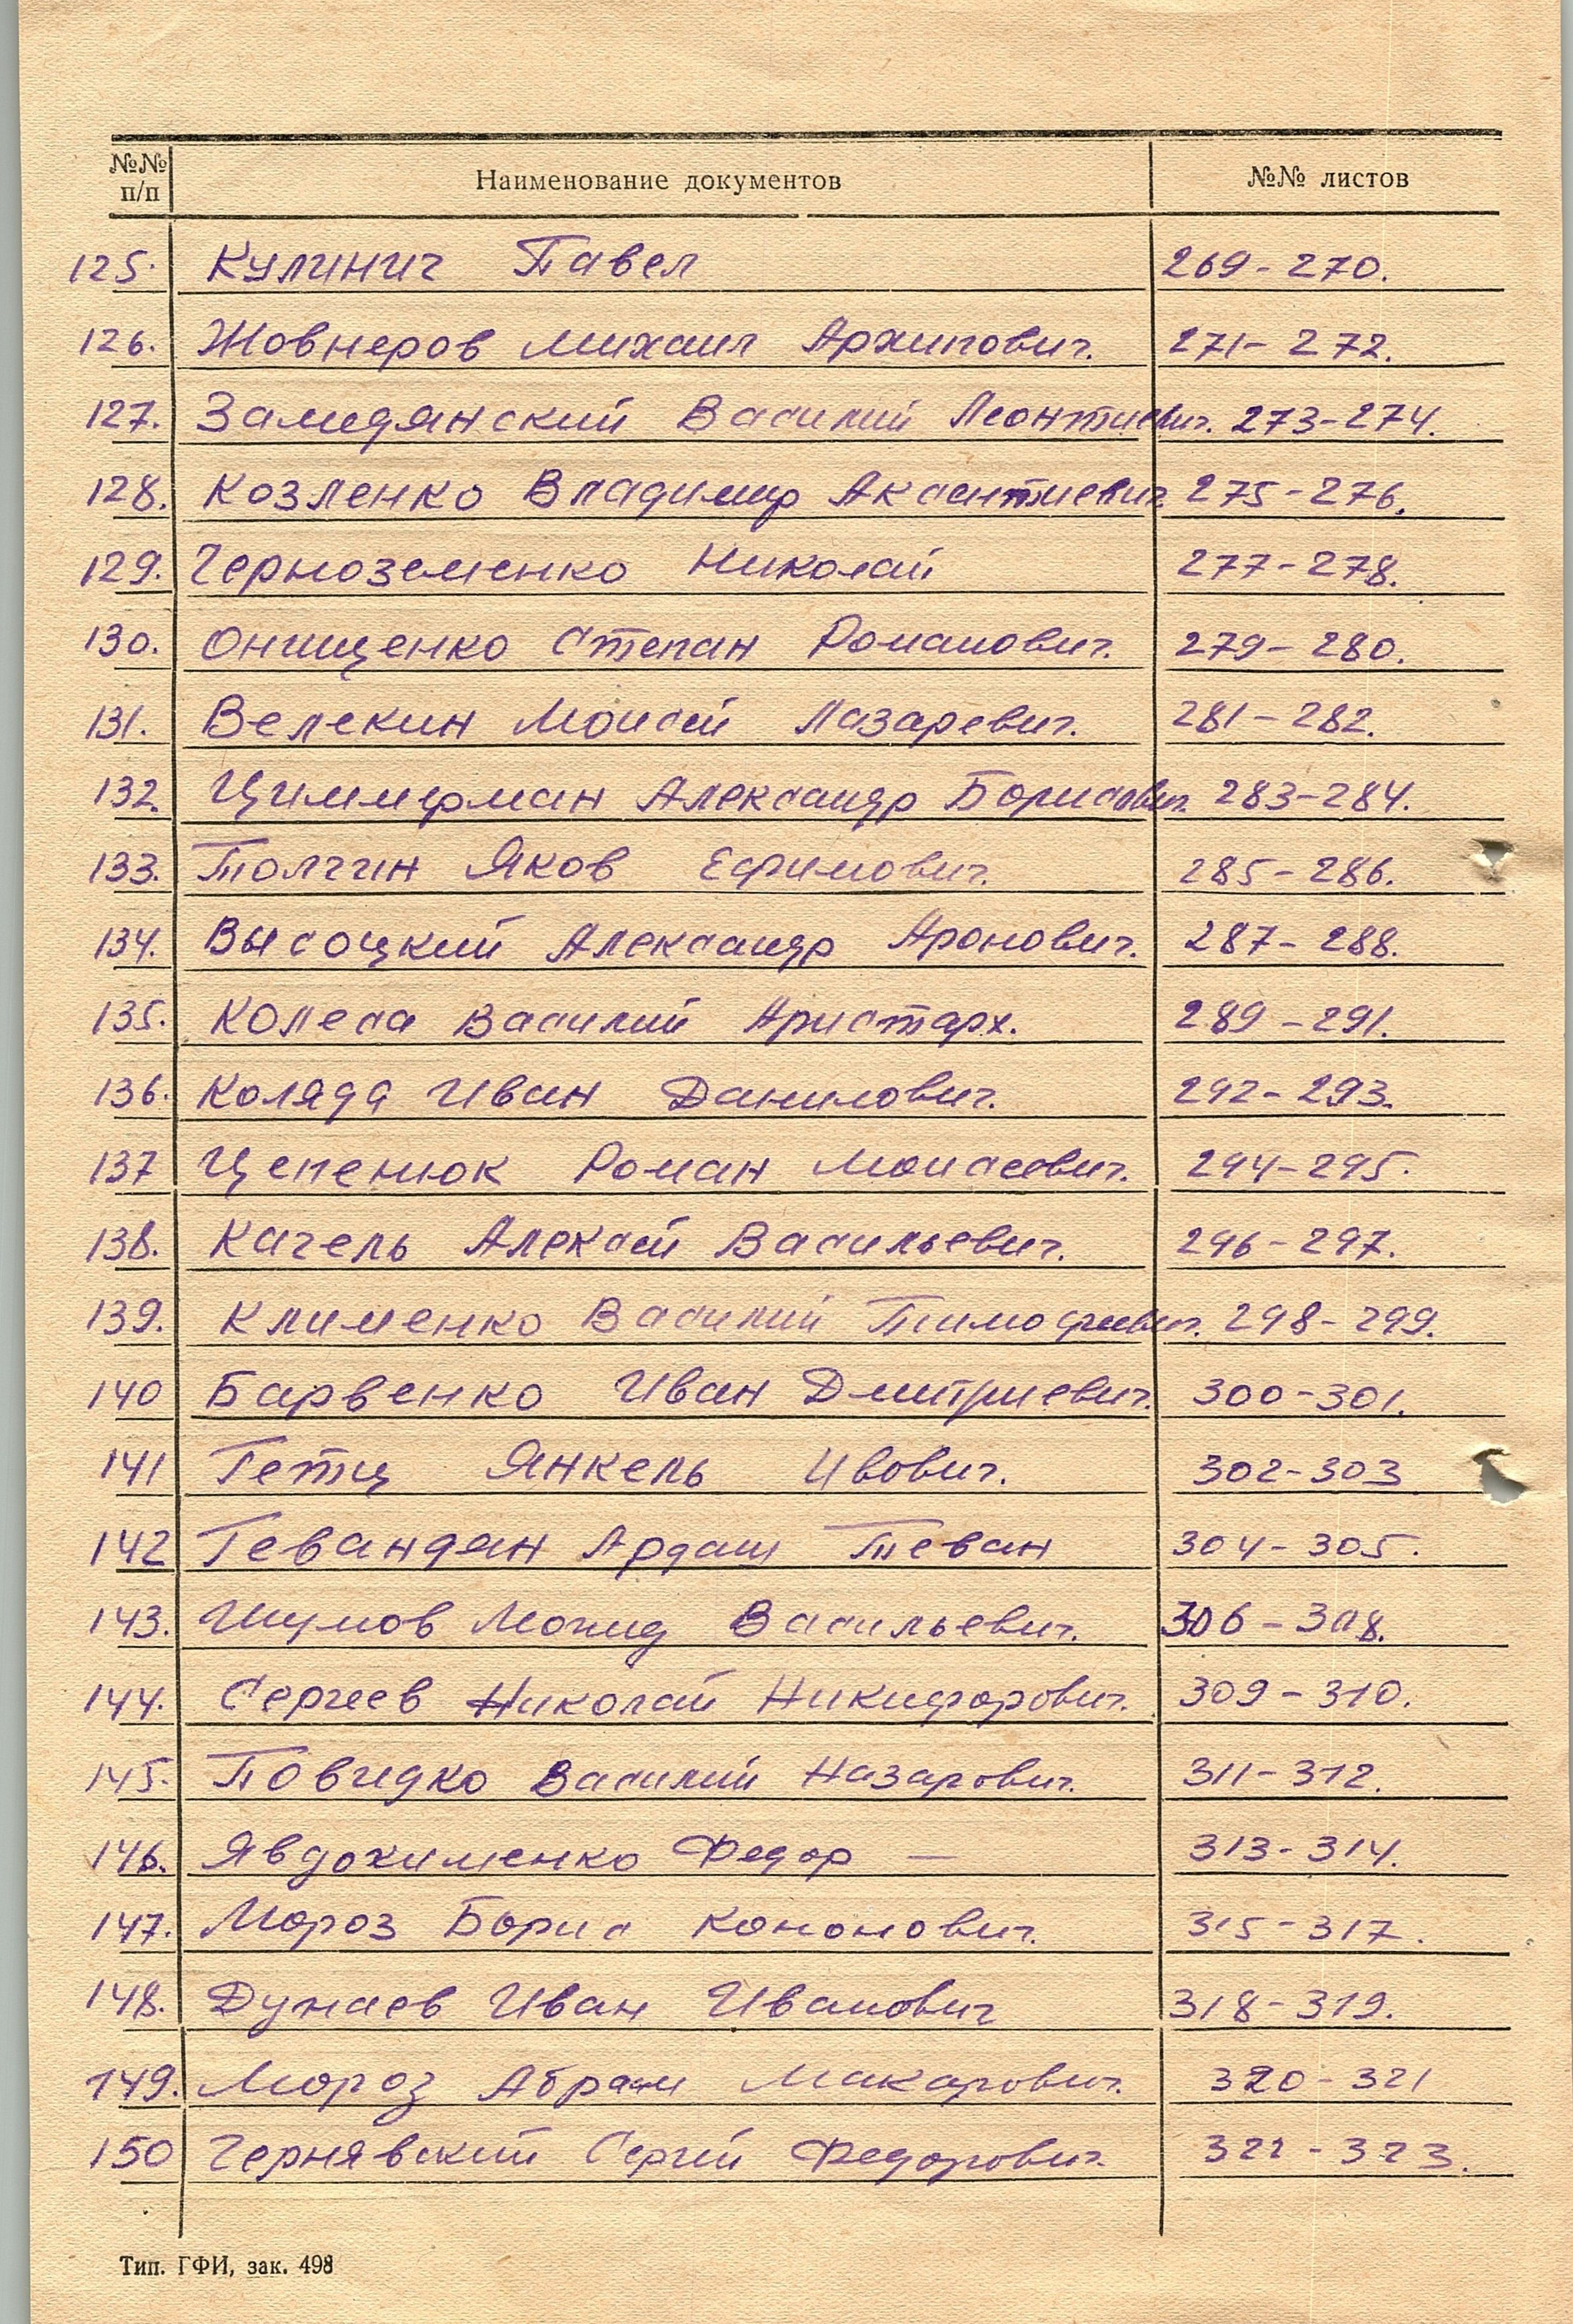 №№ п/п Наименование документов №№ листов
125. Кулинич Павел 269-270.
126. Жовнеров Михаил Архипович. 271-272.
127. Замедянский Василий Леонтиевич. 273-274.
128. Козленко Владимир Аксентиевич 275-276.
129. Черноземенко Николай 277-278.
130. Онищенко Степан Романович. 279-280.
131. Велекин Моисей Лазаревич. 281-282.
132. Циммерман Александр Борисович. 283-284.
133. Толчин Яков Ефимович. 285-286.
134. Высоцкий Александр Аронович. 287-288.
135. Колеса Василий Аристарх. 289-291.
136. Коляда Иван Данилович. 292-293.
137 Цепенюк Роман Моисеевич. 294-295.
138. Качель Алексей Васильевич. 296-297.
139. Клименко Василий Тимофеевич. 298-299.
140 Барвенко Иван Дмитриевич. 300-301.
141 Гетц Янкель Ивович. 302-303
142 Гевандян Ардаш Теван 304-305.
143. Шумов Васильевич. 306-308.
144. Сергеев Николай Никифорович. 309-310.
145. Повидко Василий Назарович. 311-312.
146. Явдокименко Федор — 313-314.
147. Мороз Борис Кононович. 315-317.
148. Дунаев Иван Иванович 318-319.
149. Мороз Абрам Макарович. 320-321
150 Чернявский Сергей Федорович. 322-323.
Тип. ГФИ, зак. 498